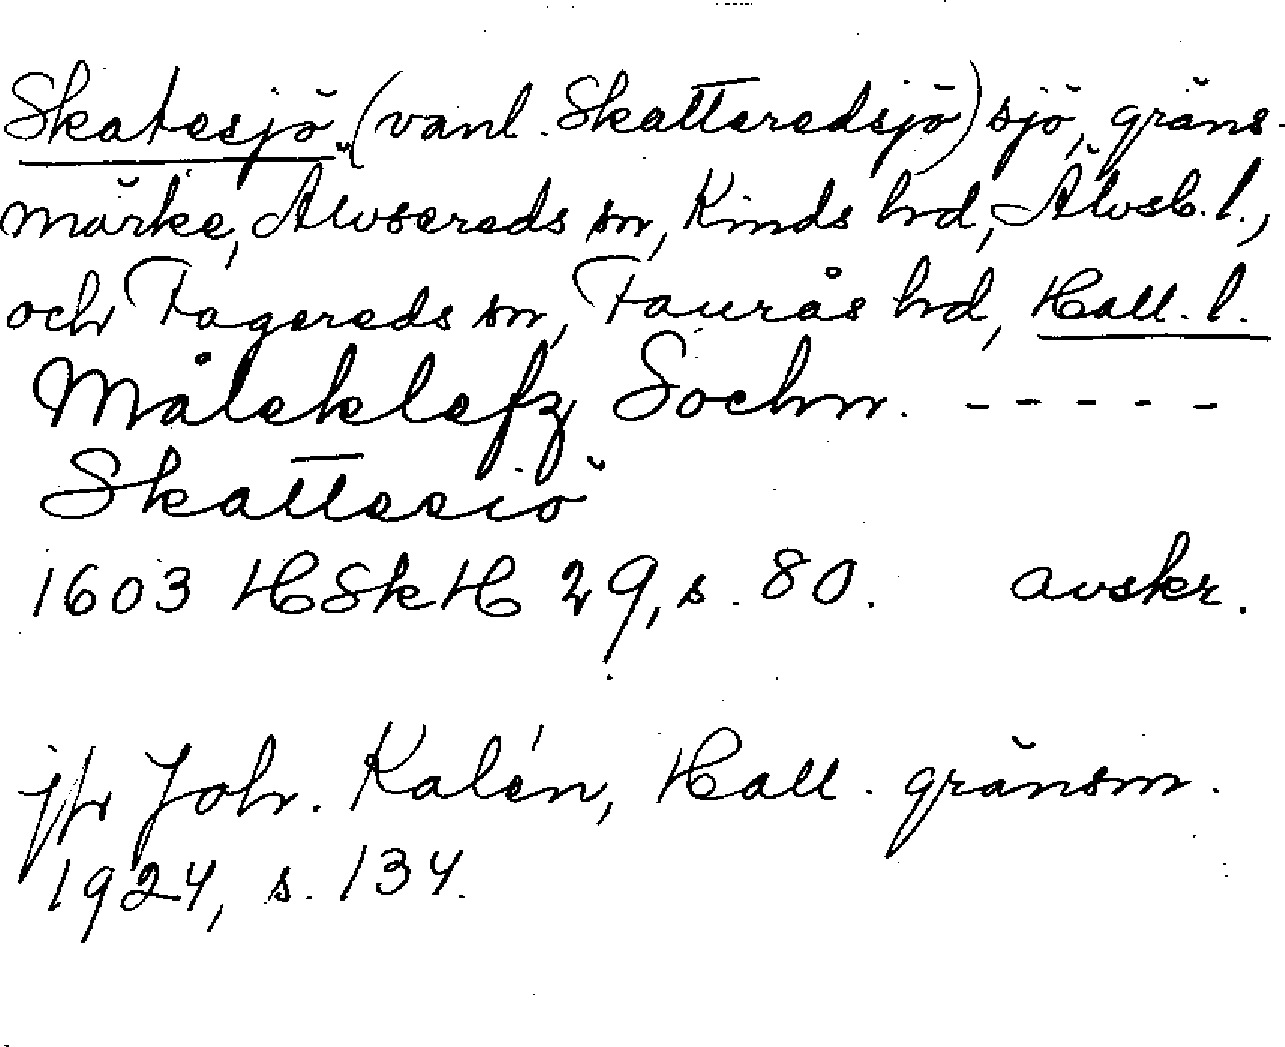 Skatesjö (vanl. Skatteredsjö) sjö, gräns-
märke, Älvsereds sn, Kinds hd, Älvsb. l.,
och Fagereds sn, Faurås hd, Hall. l.
Måleklefz Sochn. - - - - -
Skattesiö
1603 HSkH 29, s. 80. avskr.
jfr Joh. Kalén, Hall. gränsm.
1924, s. 134.